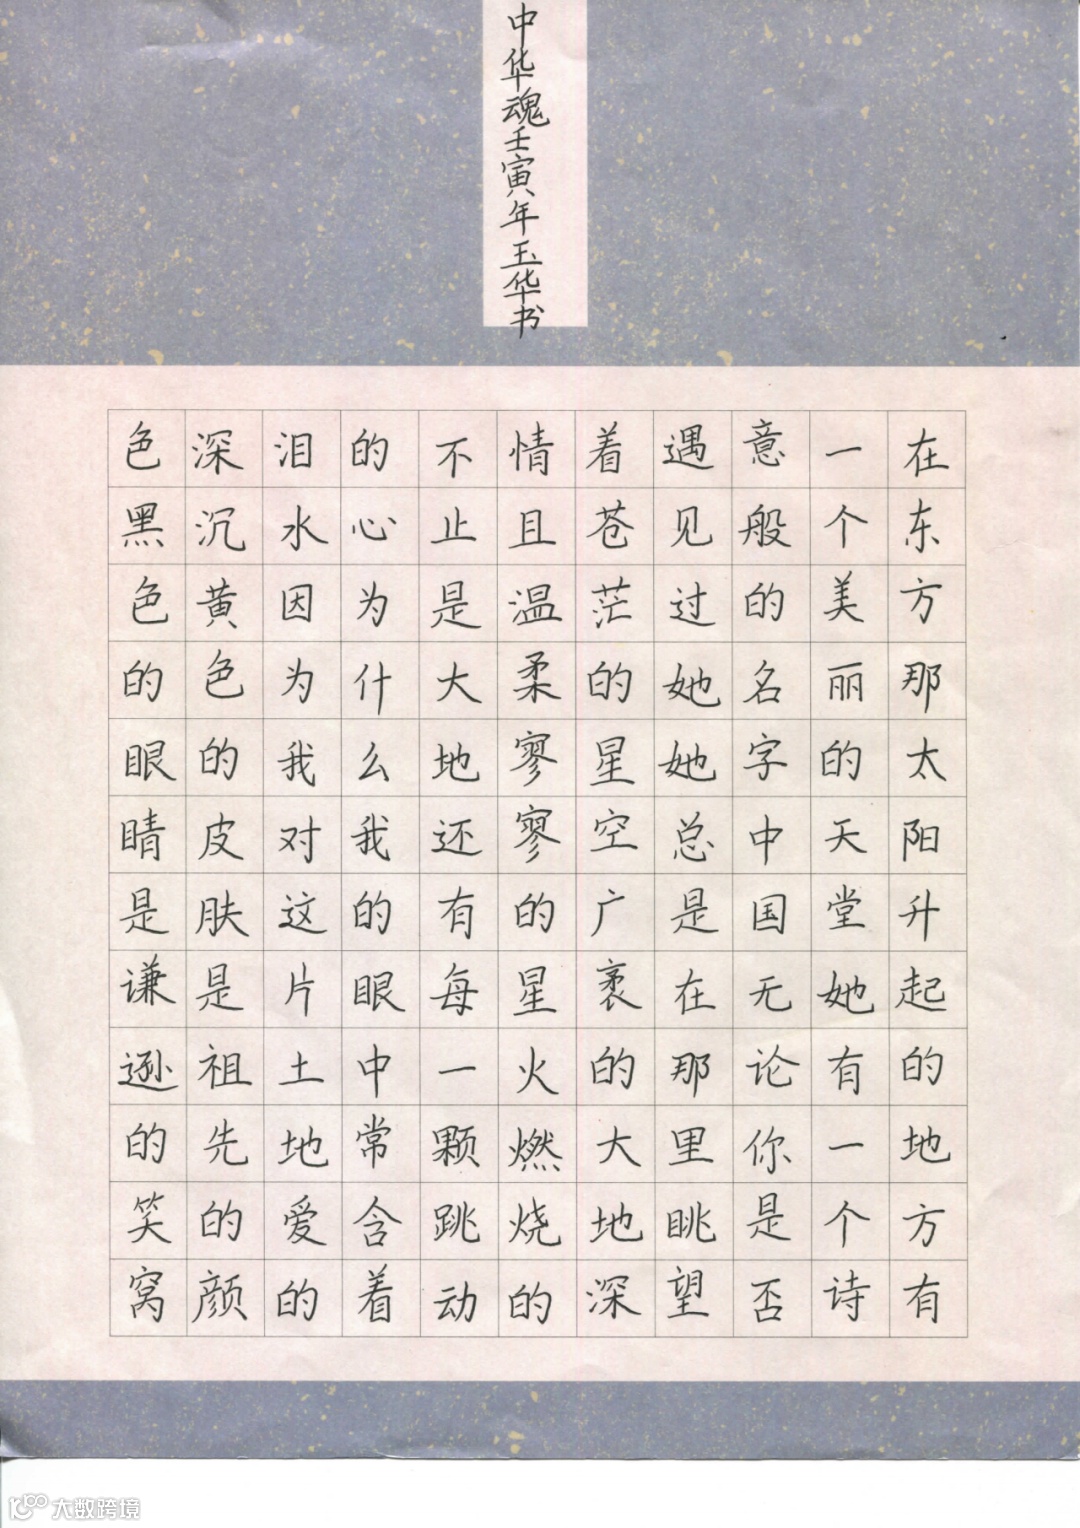 中华魂壬寅年玉华书
在东方那太阳升起的地方有
一个美丽的天堂她有一个诗
意般的名字中国无论你是否
遇见过她她总是在那里眺望
着苍茫的星空广袤的大地深
情且温柔的寥寥的星火燃烧的
不止是大地还有每一颗跳动
的心为什么我的眼中常含着
泪水因为我对这片土地爱的
深沉黄色的皮肤是祖先的颜
色黑色的眼睛是谦逊的笑窝
大数跨境